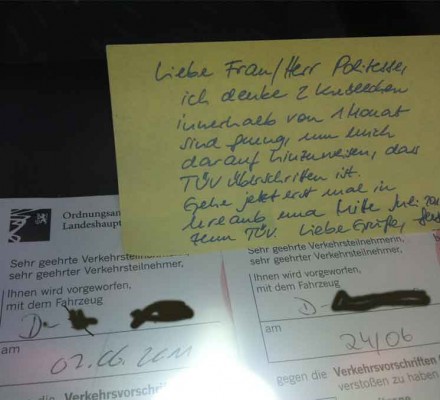 Liebe Frau/Herr Politesse,
ich denke 2 Knöllchen
innerhalb von 1 Monat
sind genug, um mich
darauf hinzuweisen, das
TÜV überschritten ist.
Gehe jetzt erst mal in
Urlaub und Mitte Juli
zum TÜV. Liebe Grüße,
Ordnungsam
Landeshaupt
Sehr geehrte Verkehrsteilnehmerin,
sehr geehrter Verkehrsteilnehmer,
Ihnen wird vorgeworfen,
mit dem Fahrzeug
D-
am
02.06.2011
die Verkehrsvorschriften
Sehr geehrte Verkehrsteilnehmerin,
sehr geehrter Verkehrsteilnehmer,
Ihnen wird vorgeworfen,
mit dem Fahrzeug
D-
am
24/06
gegen die Verkehrsvorschriften
verstoßen zu haben